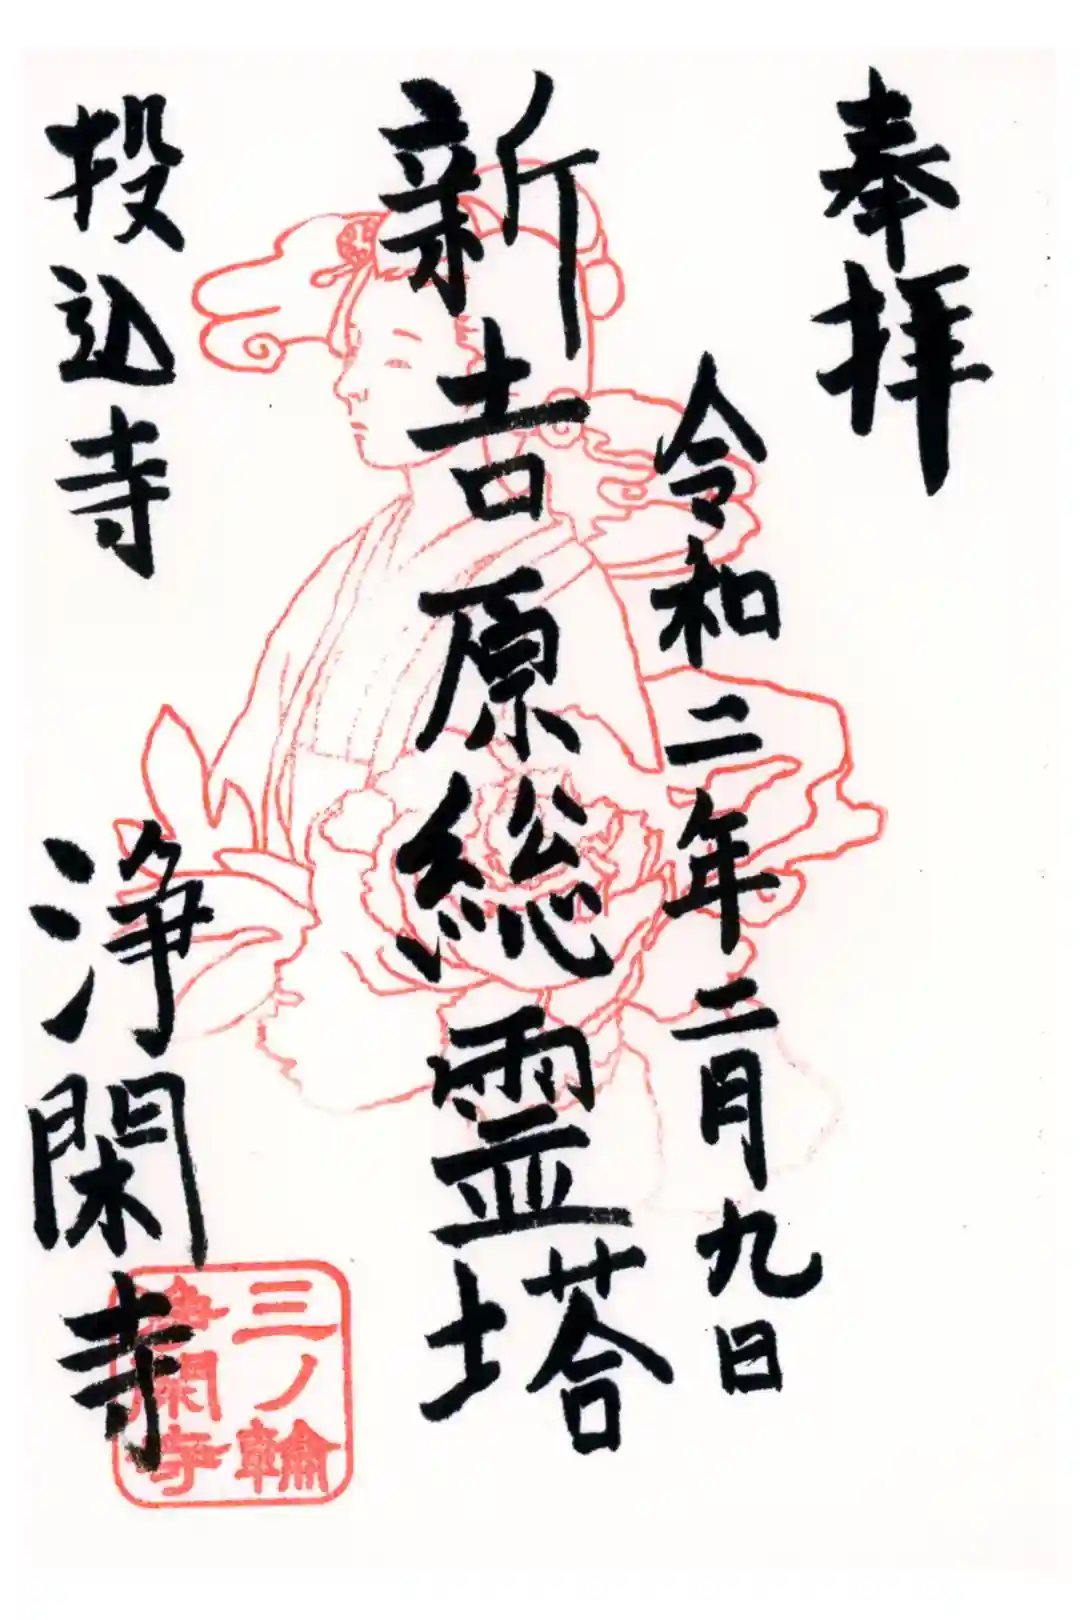 奉拝
令和二年二月九日
新吉原総霊塔
投込寺
浄閑寺
三ノ輪
浄閑寺